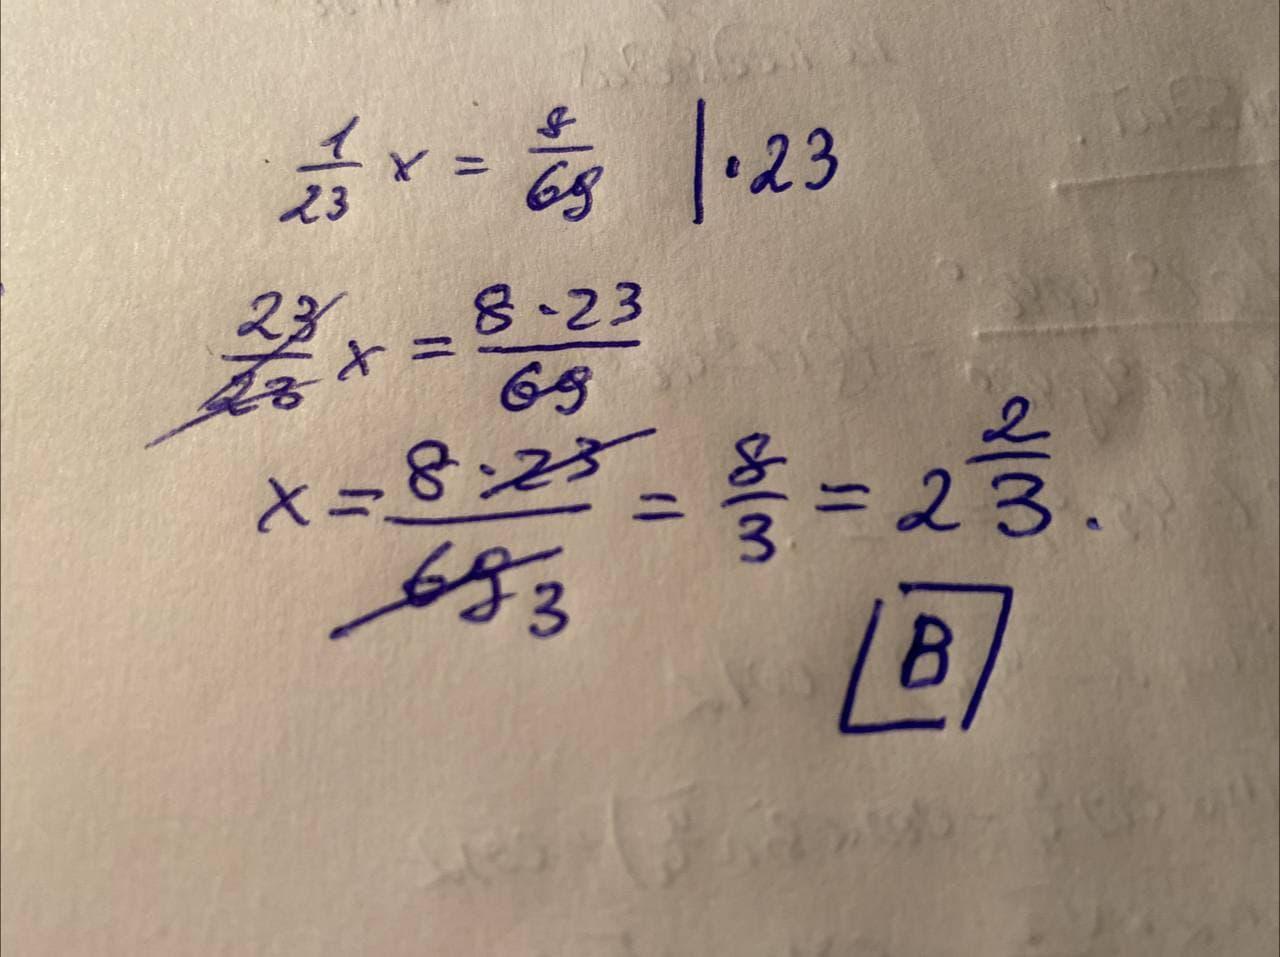 1/23 x = 8/69 | · 23
23/23 x = 8 · 23/69
x = 8 · 23/69 3 = 8/3 = 2 2/3 .
B